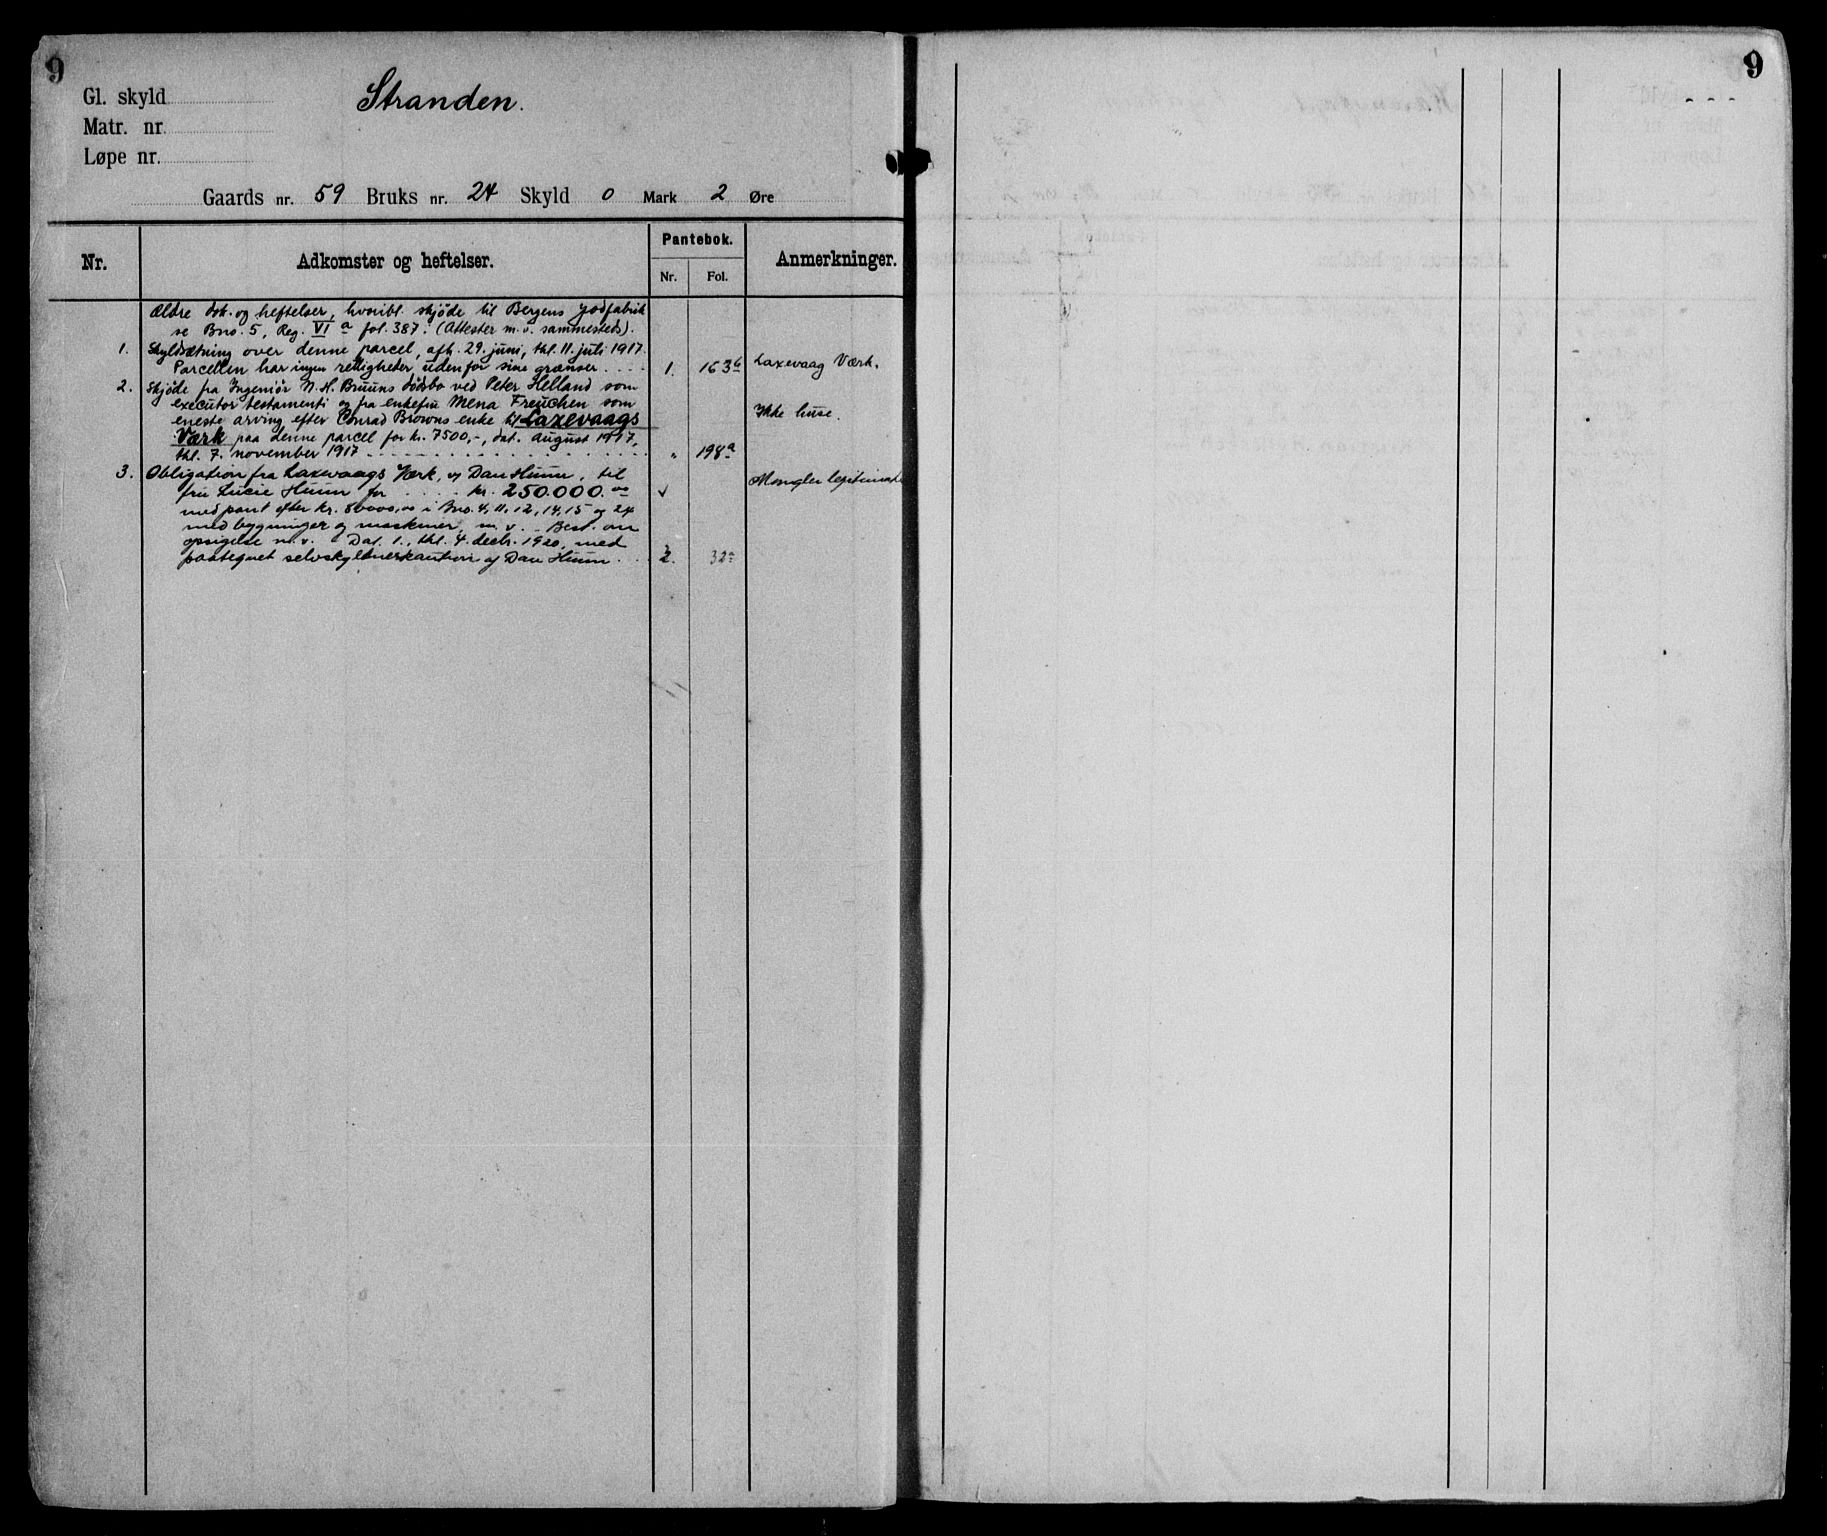 9
Gl. skyld
Stranden.
Matr. nr.
Løpe nr.
Gaards nr. 59 Bruks nr. 24 Skyld 0 Mark 2 Øre
Nr.
Adkomster og heftelser.
Pantebok.
Nr. Fol.
Anmerkninger.
Ældre dok. og heftelser, hvoribl. skjøde til Bergens Jodfabrik
se Bno. 5, Reg. VI a fol. 387. (Attester m. v. sammesteds).
1. Skyldsætning over denne parcel, afh. 29. juni, thl. 11. juli 1917.
Parcellen har ingen rettigheter utenfor sine grænser . . . . 1. 163b Laxevaag Værk.
2. Skjøde fra Ingeniør N. H. Bruuns dødsbo ved Peter Helland som
executor testamenti og fra enkefru Mena Freuchen som
eneste arving efter Conrad Browns enke til Laxevaags Ikke huse.
Værk paa denne parcel for kr. 7500,-, dat. august 1917,
thl. 7. november 1917 . . . . . . . . . . " 198a
3. Obligation fra Laxevaags Værk, v/ Dan Huun, til Mangler
fru Lucie Huun for . . . . kr. 250.000.00
med pant efter kr. 80000,00 i Bno. 4, 11, 12, 14, 15 og 24
med bygninger og maskiner, m. v. Best. om
opsigelse m. v. Dat. 1., thl. 4. decbr. 1920, med
paategnet selvskyldnerkaution af Dan Huun . . 2. 32a
9